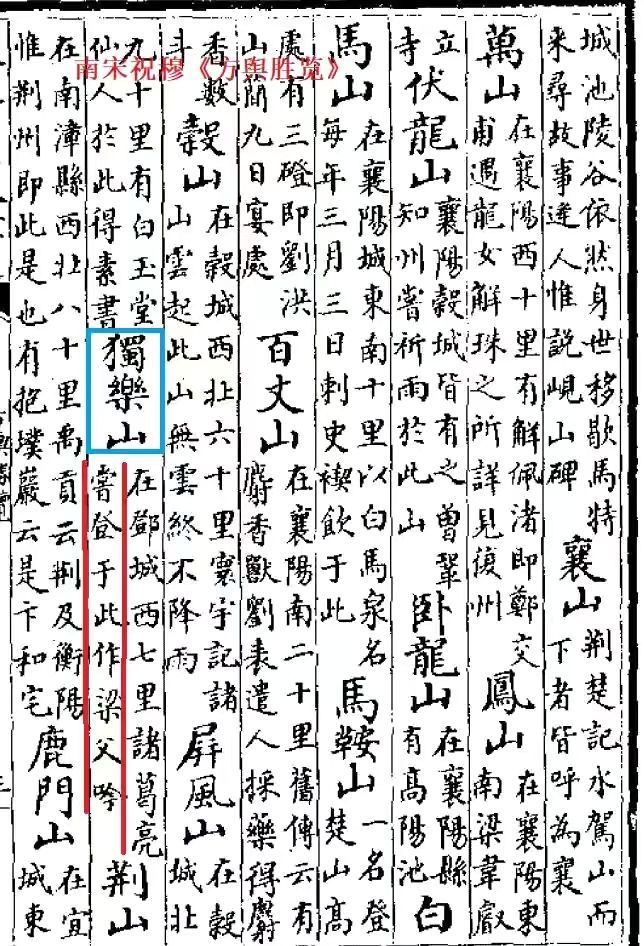 南宋祝穆《方舆胜览》
城池陵谷依然身世移歇馬特來尋故事逢人惟說峴山碑襄山荆楚記水駕山而下者皆呼為襄
萬山在襄陽西十里有解佩渚即鄭交甫遇龍女解珠之所詳見復州鳳山在襄陽東南梁韋叡
立寺伏龍山襄陽榖城皆有之曾鞏知州嘗祈雨於此山卧龍山在襄陽縣有高陽池白
馬山在襄陽城東南十里以白馬泉名每年三月三日刺史禊飲于此馬鞍山一名登楚山高
處有三磴即劉洪山簡九日宴處百丈山在襄陽南二十里舊傳云有麝香獸劉表遣人採藥得麝
香數斗榖山在榖城西北六十里寰宇記諸山雲起此山無雲終不降雨屏風山在榖城北
九十里有白玉堂仙人於此得素書獨樂山在鄧城西七里諸葛亮嘗登于此作梁父吟荆山
在南漳縣西北八十里禹貢云荆及衡陽惟荆州即此是也有抱璞巖云是卞和宅鹿門山在宜城東